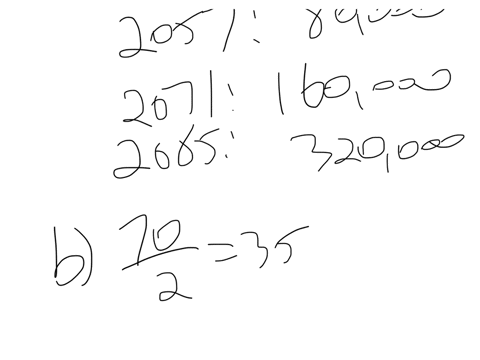 2057: 80,000
2071: 160,000
2085: 320,000
b) 70/2 = 35